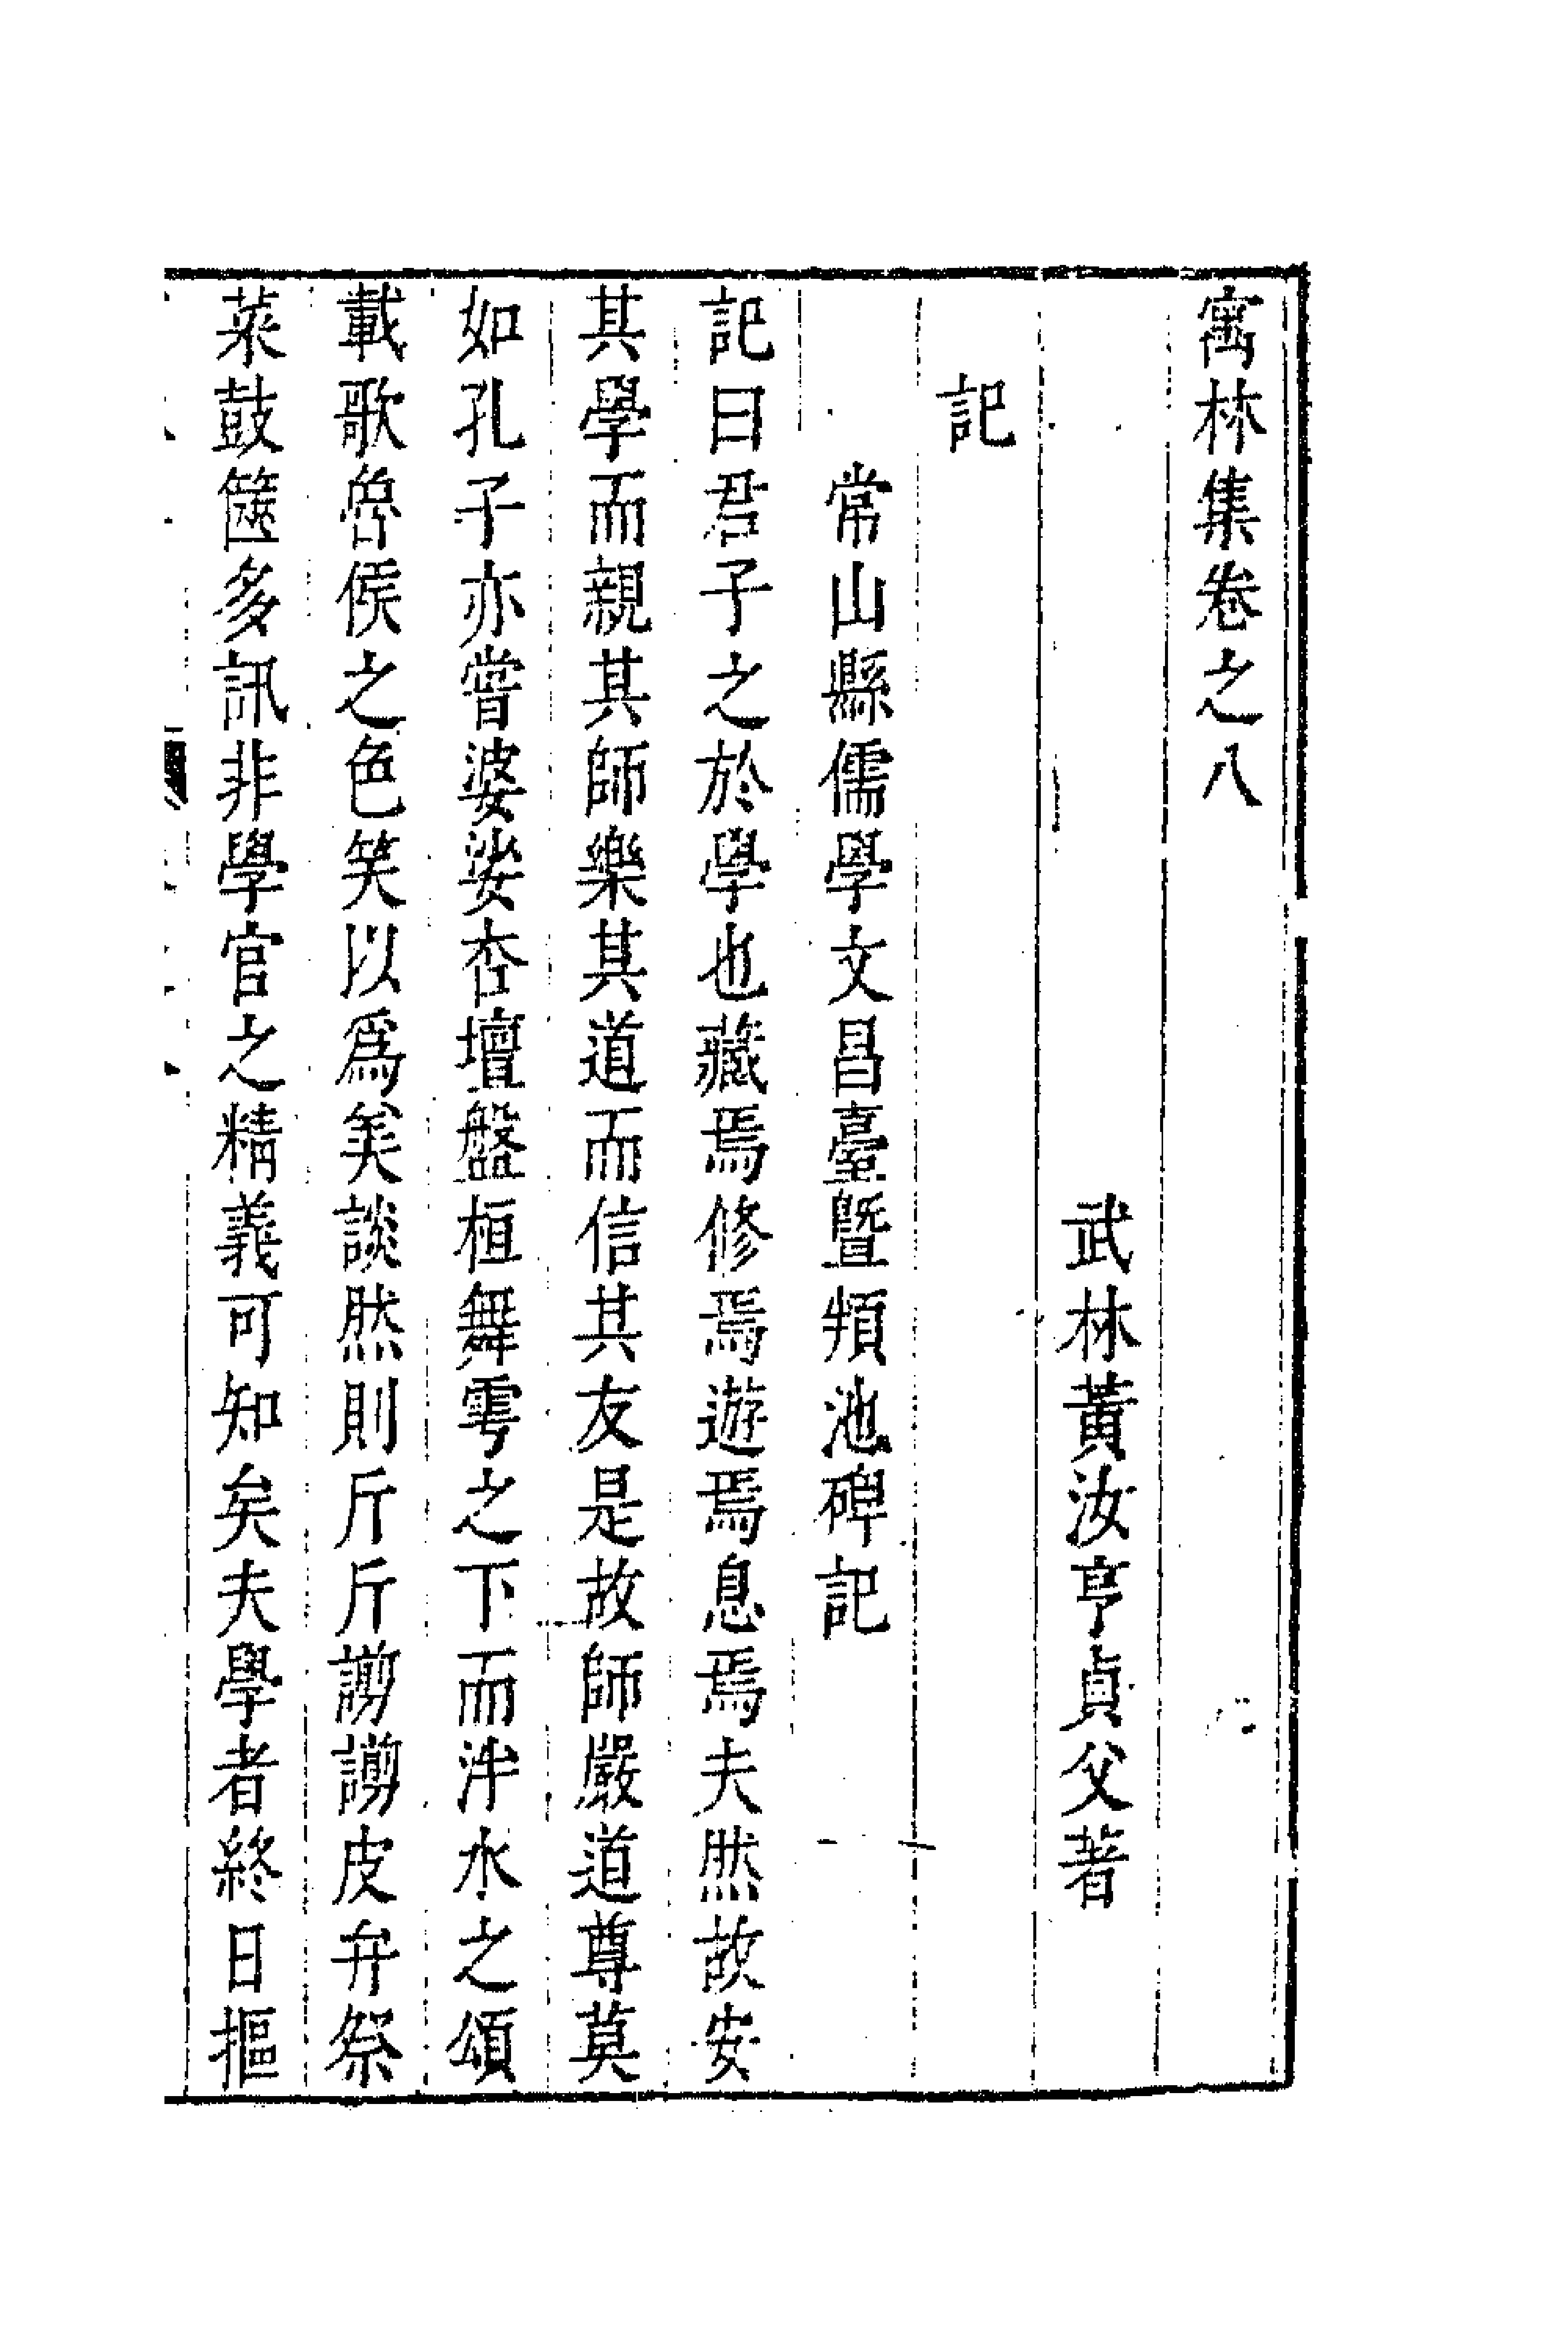 寓林集卷之八
武林黃汝亨貞父著
記
常山縣儒學文昌臺曁頖池碑記
記曰君子之於學也藏焉修焉遊焉息焉夫然故安
其學而親其師樂其道而信其友是故師嚴道尊莫
如孔子亦嘗婆娑杏壇盤桓舞雩之下而泮水之頌
載歌魯侯之色笑以爲美談然則斤斤謭謭皮弁祭
菜鼓篋多訊非學官之精義可知矣夫學者終日摳